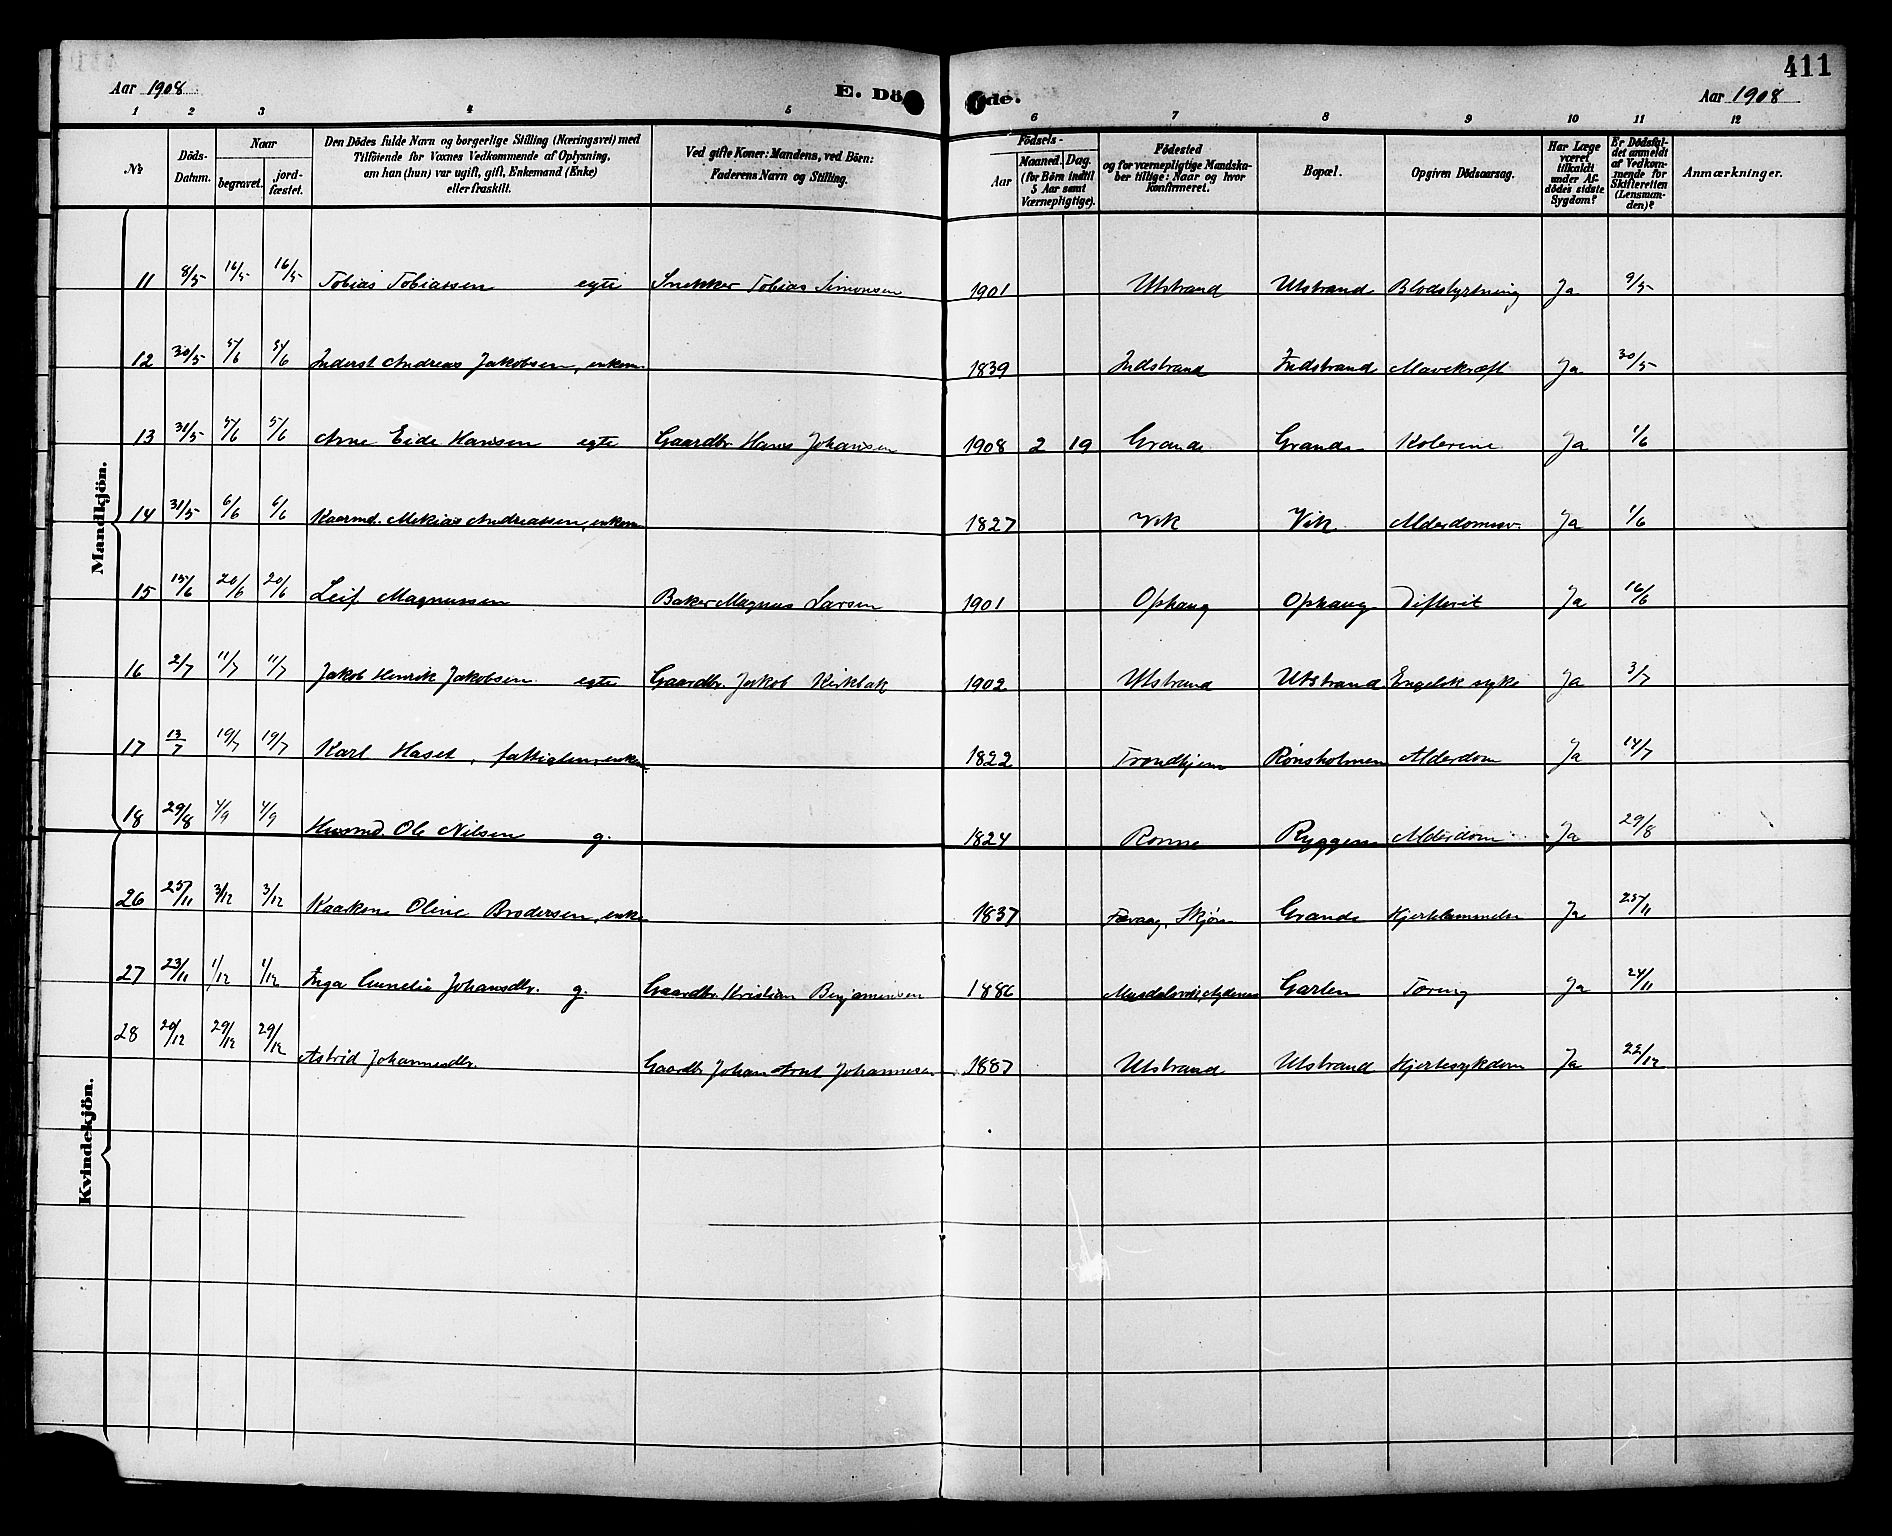 411
Aar 1908 E. Döde. Aar 1908
1 2 3 4 5 6 7 8 9 10 11 12
№ Döds-Datum. Naar begravet. jord-fæstet. Den Dödes fulde Navn og borgerlige Stilling (Næringsvei) med Tilföiende for Voxnes Vedkommende af Oplysning, om han (hun) var ugift, gift, Enkemand (Enke) eller fraskilt. Ved gifte Koner: Mandens, ved Börn: Faderens Navn og Stilling. Födsels- Aar Maaned. Dag. (for Börn indtil 5 Aar samt Værnepligtige). Födested og for værnepligtige Mandska-ber tillige: Naar og hvor konfirmeret. Bopæl. Opgiven Dödsaarsag. Har Læge været tilkaldt under Af-dödes sidste Sygdom? Er Dödsfal-det anmeldt af Vedkom-mende for Skifteretten (Lensman-den)? Anmærkninger.
Mandkjön.
11 8/5 16/5 16/5 Tobias Tobiassen egte Snekker Tobias Simonsen 1901 Utstrand Utstrand Blodstyrtning Ja 9/5
12 30/5 5/6 5/6 Inderst Andreas Jakobsen, enkem. 1839 Indstrand Indstrand Mavekræft Ja 30/5
13 31/5 5/6 5/6 Arne Eide Hansen egte Gaardbr. Hans Johansen 1908 2 19 Grande Grande Kolerine Ja 1/6
14 31/5 6/6 6/6 Kaarmd. Mekias Andreassen, enkem 1827 Vik Vik Alderdomssv. Ja 1/6
15 15/6 20/6 20/6 Leif Magnussen Baker Magnus Larsen 1901 Ophaug Ophaug Difterit Ja 16/6
16 2/7 11/7 11/7 Jakob Henrik Jakobsen egte Gaardbr. Jakob Kirkbak 1902 Utstrand Utstrand Engelsk syke Ja 3/7
17 13/7 19/7 19/7 Karl Haset, fattiglem, enkem. 1822 Trondhjem Rønsholmen Alderdom Ja 14/7
18 29/8 4/9 4/9 Husmd. Ole Nilsen g. 1824 Rønne Ryggen Alderdom Ja 29/8
Kvindekjön.
26 25/11 3/12 3/12 Kaakone Oline Brodersen, enke 1837 Fævaag, Skjørn Grande Hjertelammelse Ja 25/11
27 23/11 1/12 1/12 Inga Johansdtr. g. Gaardbr. Kristian Benjaminsen 1886 Garten Tæring Ja 24/11
28 20/12 29/12 29/12 Astrid Johannesdtr. Gaardbr. Johan Arnt Johannesen 1887 Utstrand Utstrand Hjertesykdom Ja 22/12